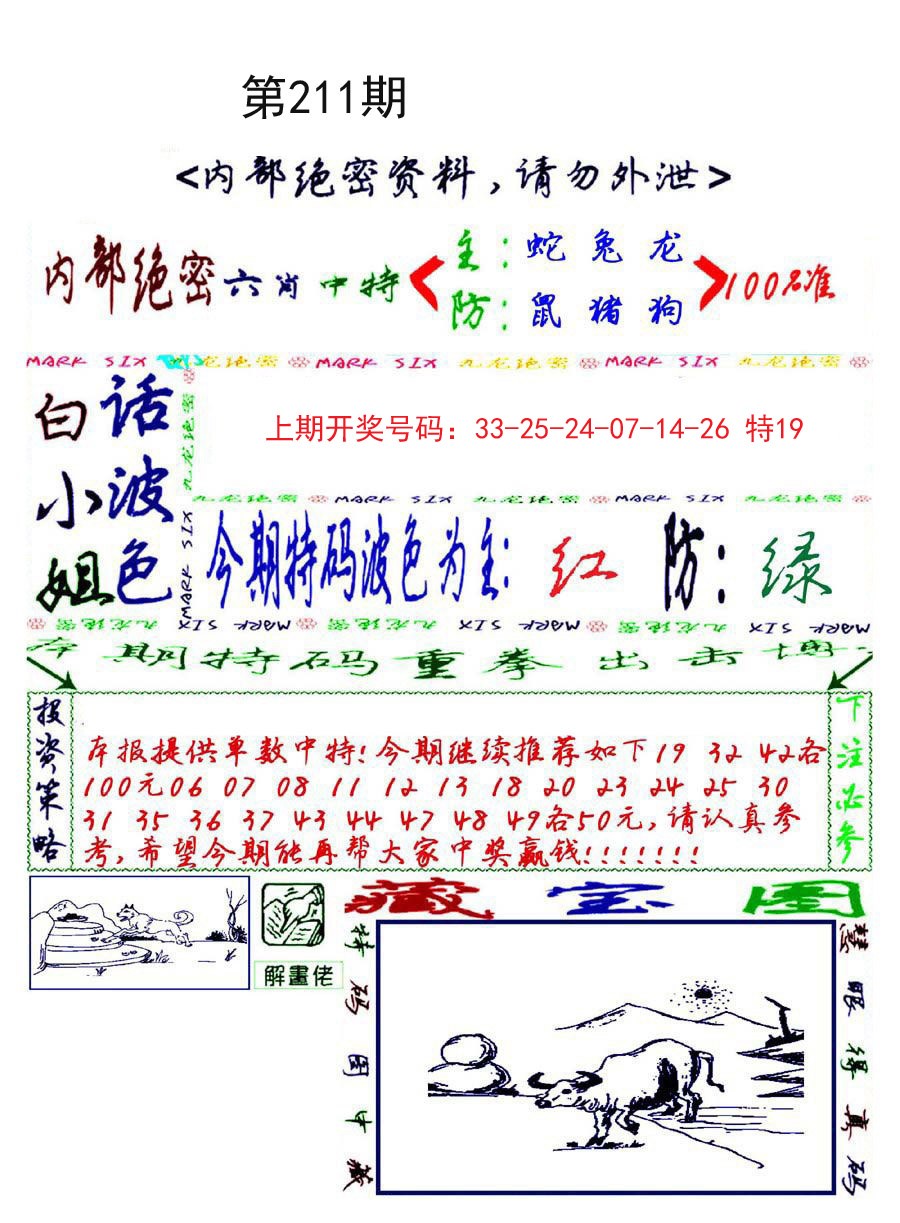 第211期
<内部绝密资料,请勿外泄>
内部绝密六肖中特
主:蛇兔龙
防:鼠猪狗
100%准
MARK SIX 九龙绝密 MARK SIX 九龙绝密 MARK SIX 九龙绝密
白话
小波
姐色
九龙绝密
MARK SIX
上期开奖号码：33-25-24-07-14-26 特19
九龙绝密 MARK SIX 九龙绝密 MARK SIX 九龙绝密
今期特码波色为主:红 防:绿
MARK SIX 九龙绝密 MARK SIX 九龙绝密 MARK SIX 九龙绝密
本期特码重拳出击博
投资策略
本报提供单数中特!今期继续推荐如下19 32 42各
100元06 07 08 11 12 13 18 20 23 24 25 30
31 35 36 37 43 44 47 48 49各50元,请认真参
考,希望今期能再帮大家中奖赢钱!!!!!!!
下注必参
解畫佬
藏宝图
特码图中藏
慧眼得真码